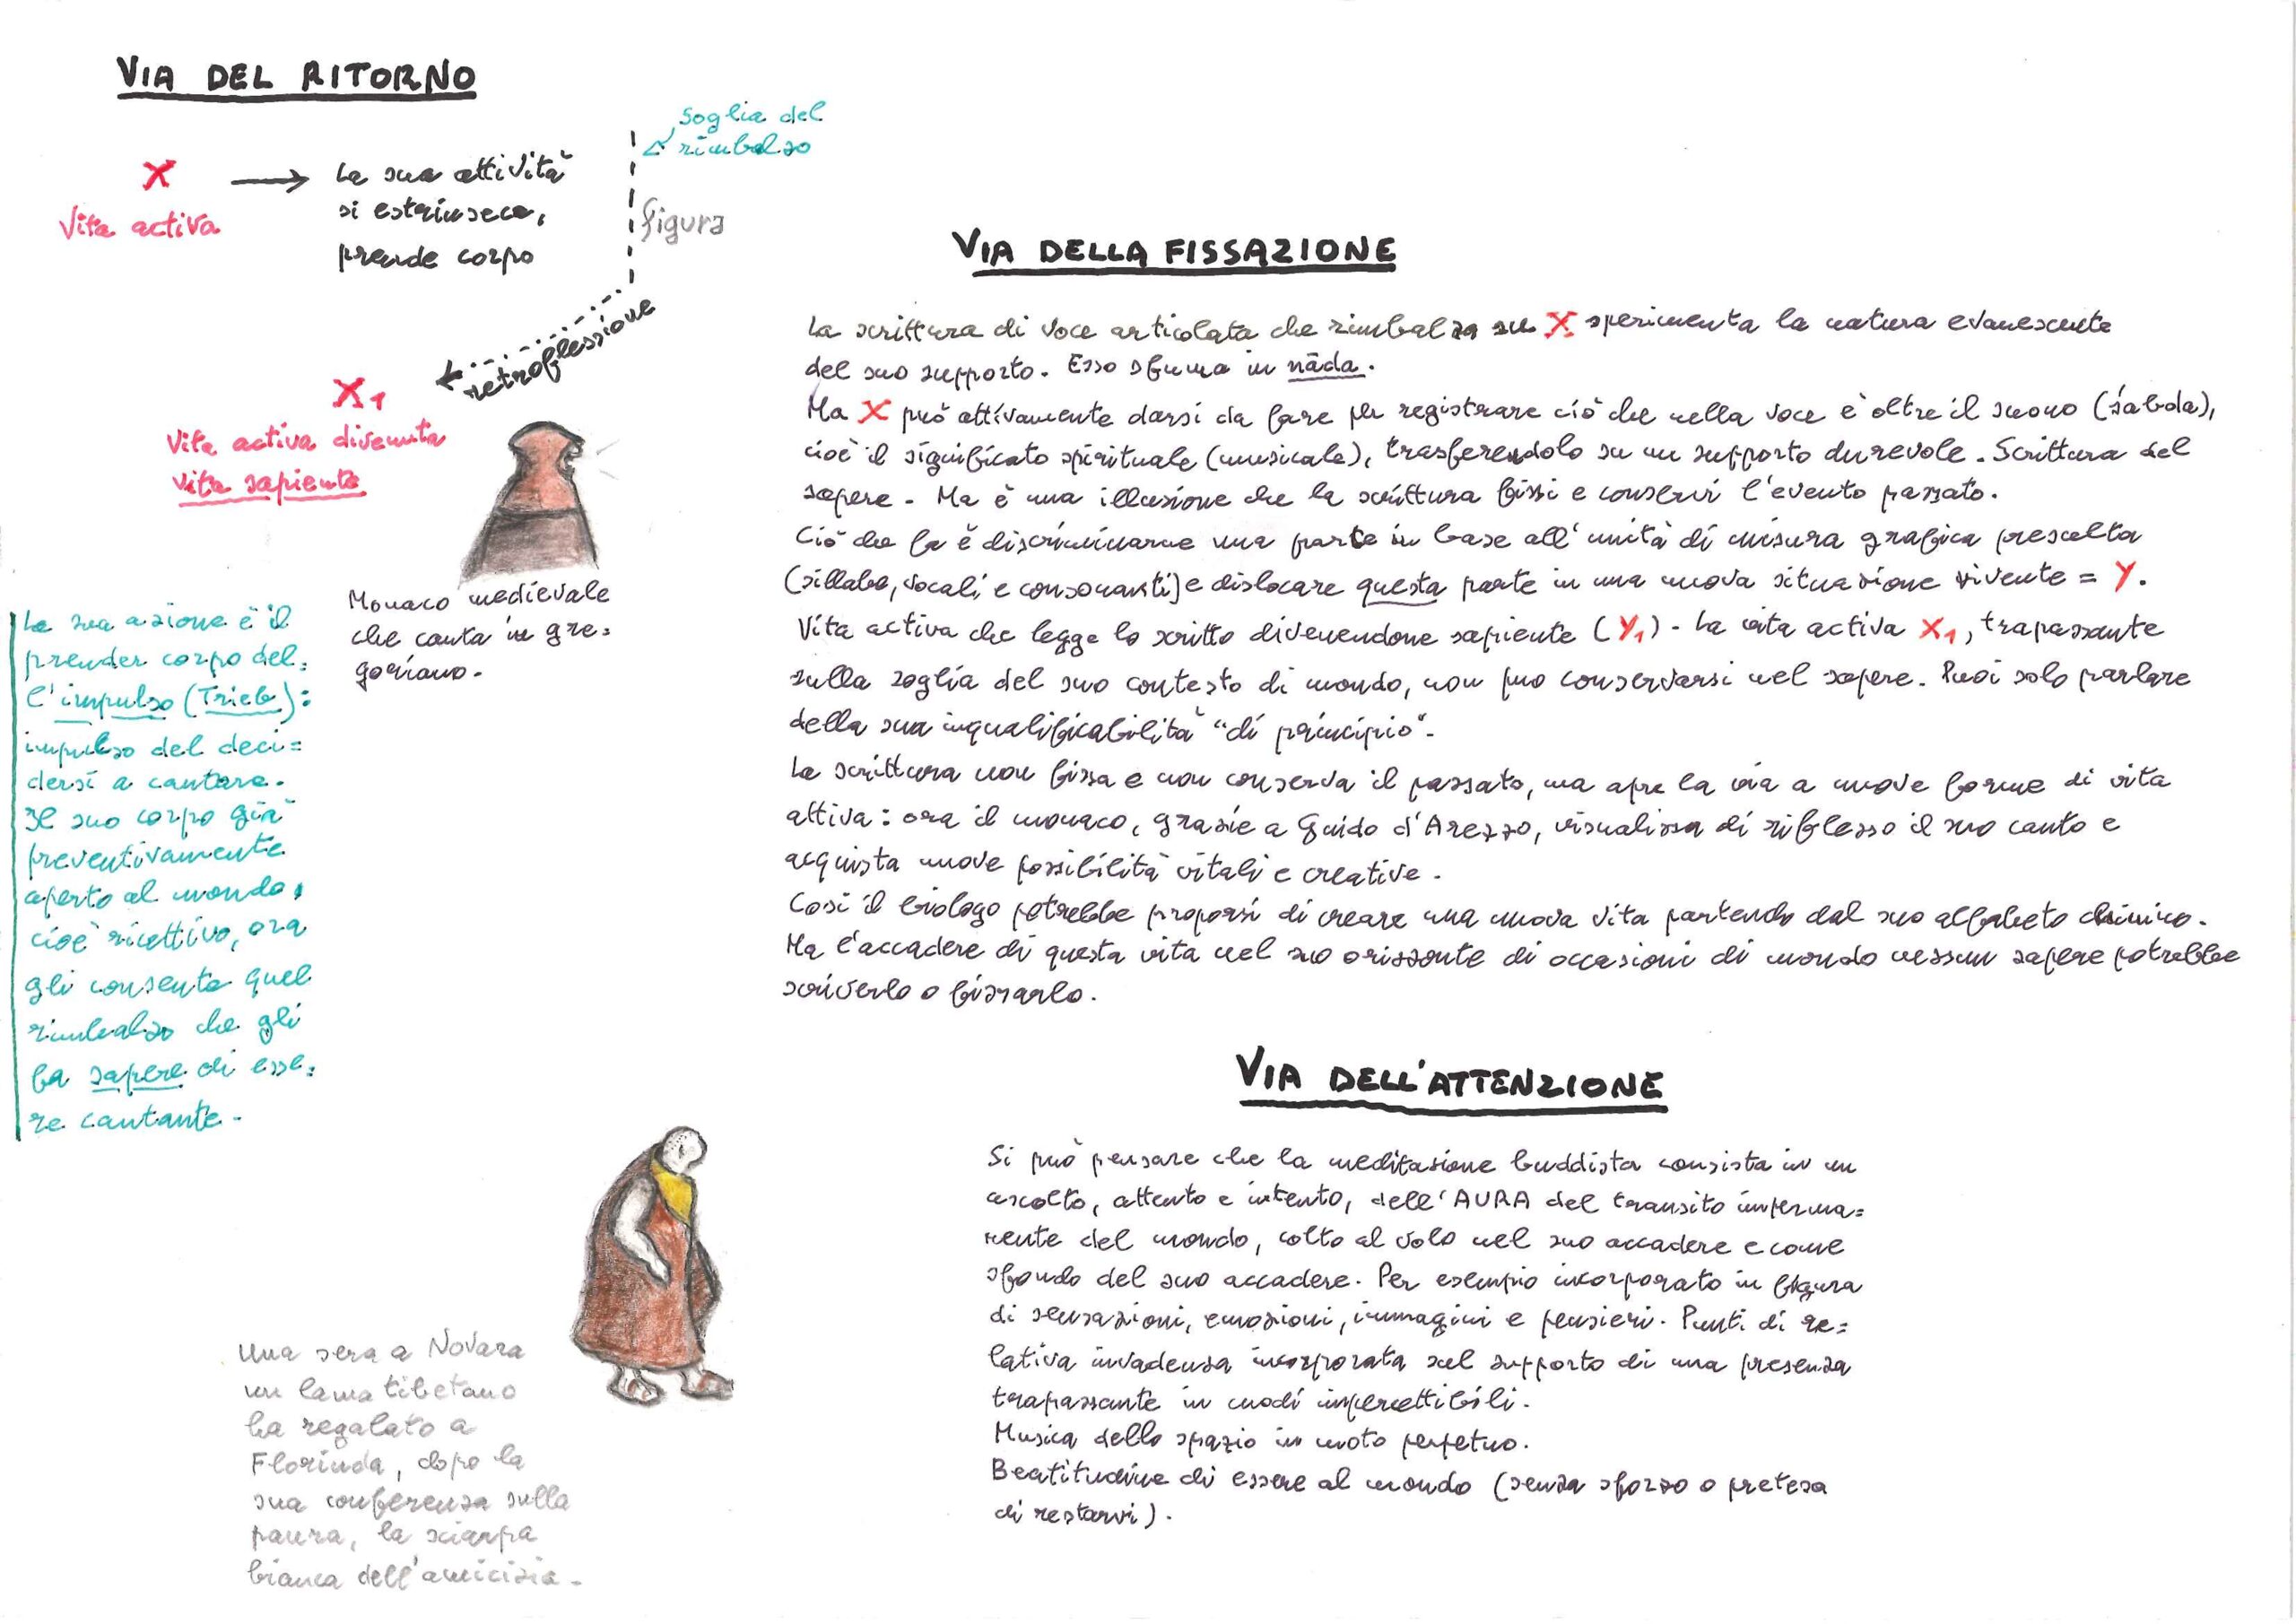 VIA DEL RITORNO
Soglia del
rimbalzo
X
Vita activa
La sua attività
si estrinseca,
prende corpo
figura
retroflessione
X1
Vita activa divenuta
vita sapiente
Monaco medievale
che canta in gre=
goriano.
La sua azione è il
prender corpo del=
l'impulso (Trieb):
impulso del deci=
dersi a cantare.
Il suo corpo già
preventivamente
aperto al mondo,
cioè ricettivo, ora
gli consente quel
rimbalzo che gli
fa sapere di esse=
re cantante.
Una sera a Novara
un lama tibetano
ha regalato a
Florinda, dopo la
sua conferenza sulla
paura, la sciarpa
bianca dell'amicizia.
VIA DELLA FISSAZIONE
La scrittura di voce articolata che rimbalza su X sperimenta la natura evanescente
del suo supporto. Esso sfuma in nāda.
Ma X può attivamente darsi da fare per registrare ciò che nella voce è oltre il suono (śabda),
cioè il significato spirituale (musicale), trasferendolo su un supporto durevole. Scrittura del
sapere. Ma è una illusione che la scrittura fissi e conservi l'evento passato.
Ciò che fa è discriminarne una parte in base all'unità di misura grafica prescelta
(sillabe, vocali e consonanti) e dislocare questa parte in una nuova situazione vivente = Y.
Vita activa che legge lo scritto divenendone sapiente (Y1). La vita activa X1, trapassante
sulla soglia del suo contesto di mondo, non può conservarsi nel sapere. Puoi solo parlare
della sua inqualificabilità "di principio".
La scrittura non fissa e non conserva il passato, ma apre la via a nuove forme di vita
attiva: ora il monaco, grazie a Guido d'Arezzo, visualizza di riflesso il suo canto e
acquista nuove possibilità vitali e creative.
Così il biologo potrebbe proporsi di creare una nuova vita partendo dal suo alfabeto chimico.
Ma l'accadere di questa vita nel suo orizzonte di occasioni di mondo nessun sapere potrebbe
scriverlo o fissarlo.
VIA DELL'ATTENZIONE
Si può pensare che la meditazione buddista consista in un
ascolto, attento e intento, dell'AURA del transito imperma=
nente del mondo, colto al volo nel suo accadere e come
sfondo del suo accadere. Per esempio incorporato in figura
di sensazioni, emozioni, immagini e pensieri. Punti di re=
lativa invadenza incorporata sul supporto di una presenza
trapassante in modi impercettibili.
Musica dello spazio in moto perpetuo.
Beatitudine di essere al mondo (senza sforzo o pretesa
di restarvi).